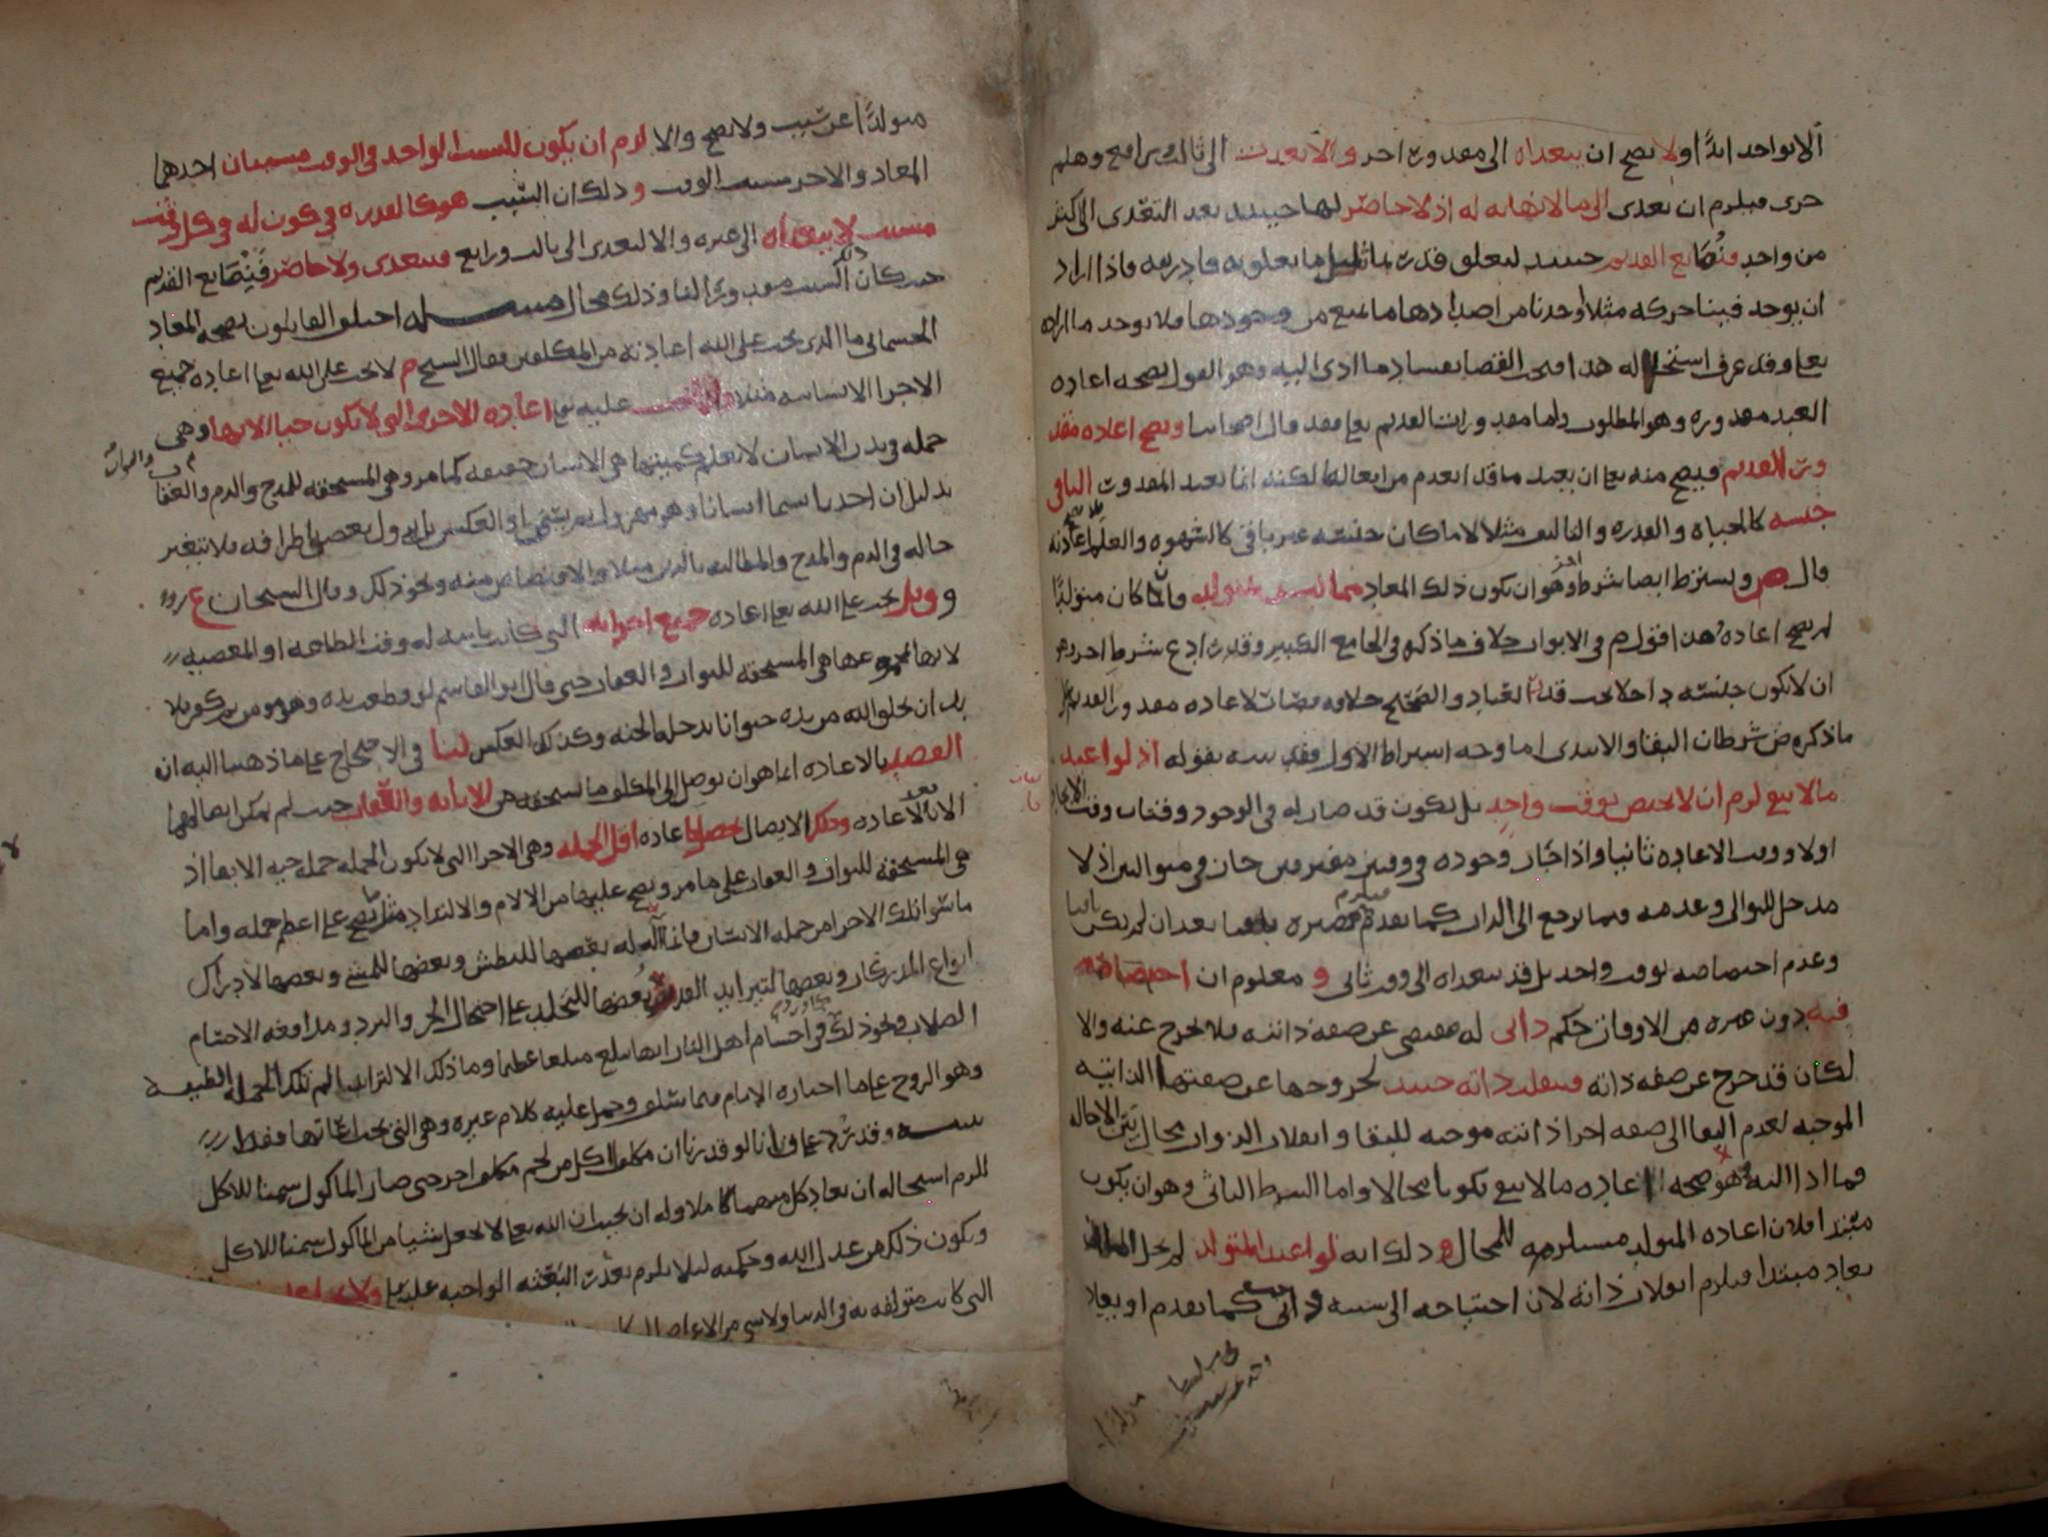 الا بواحد ابدًا ولا يصح ان يتعداه الى مقدور اخر والا تعدت الى ثالث ورابع وهلم
جرى فيلزم ان تعدى الى ما لا نهاية له اذ لا حاصر لها حينئذ بعد التعدى الى اكثر
من واحد فيمانع القديم حينئذ لتعلق قدرته بما تعلق به قادريته فاذا اراد
ان يوجد فينا حركة مثلا اوجدنا من اضدادها ما يمنع من وجودها فلا يوجد ما اراده
تعا وقد عرف استحالة هذا فيجب القضا بفساد ما ادى اليه وهو القول بصحة اعادة
العبد مقدوره وهو المطلوب واما مقدورات القديم تعا فقد قال اصحابنا ويصح اعادة مقد
ورت القديم فيصح منه تعا ان يعيد ما قد انعدم من افعاله لكنه انما يعيد المقدور الباقي
جنسه كالحياة والقدرة والتاليف مثلا لا ما كان جنسه غير باقي كالشهوة والعلم
قال ويشترط ايضا شرط اخر وهو ان يكون ذلك المعاد مما ليس بمتولد فاما ان كان متولدًا
لم يصح اعادته هذا قول م في الابواب خلاف ما ذكره في الجامع الكبير وقد زاد ع شرط اخر وهو
ان لا يكون جنسه داخلا تحت قدرة العباد والصحيح خلافه
ما ذكره من شرطان البقا والابتدى اما وجه اشتراط الاول فقد بينه بقوله اذ لو اعيد
ما لا يبقى لزم ان لا يختص بوقت واحد بل يكون قد صار له في الوجود وقتان وقت الايجاد
اولا ووقت الاعادة ثانيا واذا جاز وجوده في وقتين مفترقين جاز في متواليين اذ لا
مدخل للتوالى وعدمه فيما يرجع الى الذات كما تقدم فيلزم مصيره باقيا بعد ان لم يكن باقيا
وعدم اختصاصه بوقت واحد بل قد تعداه الى وقت ثانى و معلوم ان اختصاصه
فيه دون غيره من الاوقات حكم ذاتى له مقتضى عن صفة ذاتية فلا يخرج عنه والا
لكان قد خرج عن صفة ذاته فتنقلب ذاته حينئذ لخروجها عن صفتها الذاتية
الموجبة لعدم البقا الى صفة اخرا ذاتية موجبة للبقا وانقلاب الذوات محال بيّن الاحالة
فما ادا اليه وهو صحة اعادة ما لا يبقى يكون محالا واما الشرط الثانى وهو ان يكون
مبتدا فلان اعادة المتولد مستلزمة للمحال و ذلك انه لو اعيد المتولد لم يخل اما ان
يعاد مبتدا فيلزم انقلاب ذاته لان احتياجه الى سببه ذاتى كما تقدم او يعاد
متولدًا عن سبب ولا يصح والا لزم ان يكون للسبب الواحد في الوقت مسببان احدهما
المعاد والاخر مسبب الوقت و ذلك ان السبب هو كالقدرة في كون له في كل وقت
مسبب لا يتعداه الى غيره والا لتعدى الى ثالث ورابع فيتعدى ولا حاصر فيمانع القديم
حيث كان ذلك السبب مقدورا لنا وذلك محال مسئلة اختلف القائلون بصحة المعاد
الجسمانى ما الذى يجب على الله اعادته من المكلفين فقال الشيخ م لا يجب على الله تعا اعادة جميع
الاجزا الانسانية عليه تعا اعادة الاجزى التى لا يكون حيا الا بها وهى
جملة في بدن الانسان لا يعلم كميتها هي الانسان حقيقة كما مر وهي المستحقة للمدح والذم والعقاب والثواب
بدليل ان احدنا يسما انسانا وهو مهزول ثم يسمن او العكس بل يزول بعض اطرافه فلا يتغير
حاله في الذم والمدح والمطالبة بالدين مثلا والاقتصاص منه ونحو ذلك وقال الشيخان ع
و وقيل يجب على الله تعا اعادة جميع اجزائه التى كانت ثابتة له وقت الطاعة او المعصية
لانها مجموعها هي المستحقة للثواب والعقاب حتى قال ابو القاسم لو قطعت يده وهو مومن ثم كفر فلا
بد ان يخلق الله من يده حيوانا يدخله الجنة وكذلك العكس لنا في الاحتجاج على ما ذهبنا اليه ان
القصد بالاعادة انما هو ان يوصل الى المكلف ما يستحقه من الاثابة والعقاب حيث لم يمكن ايصالهما
الا بعد الاعادة وذلك الايصال يحصل باعادة اقل الجملة وهي الاجزا التى لا يكون الجملة جملة حية الا بها اذ
هي المستحقة للثواب والعقاب على ما مر ويصح عليها من الالام والالتذاذ مثل ما يصح على اعظم جملة واما
ما سوا تلك الاجزا من جملة الانسان فانما اله له بعضها للبطش وبعضها للمشى وبعضها لادراك
انواع المدركات وبعضها لتزايد القدر وبعضها للتجلد على احتمال الحر والبرد ومدافعة الاجسام
الصلاب ونحو ذلك في اجسام اهل النار انها تبلغ مبلغا عظيما وما ذلك الا لتزايد الم تلك الجملة اللطيفة
وهو الروح على ما اختاره الامام فيما سلف وحمل عليه كلام غيره وهي التى يجب اعادتها فقط
تنبيه وقد يرد على قولنا لو قدرنا ان مكلفا اكل من لحم مكلف اخر حتى صار الماكول سمنا للاكل
للزم استحالة ان يعاد كل منهما كاملا وله ان يجيب ان الله تعا لا يجعل شيا من الماكول سمنا للاكل
ويكون ذلك من عدل الله وحكمته ليلا يلزم تعذر البعثة الواجبة عليه تعا ولا يجب اعادة
التى كانت متولفة به في الدنيا ولا شى من الاعراض